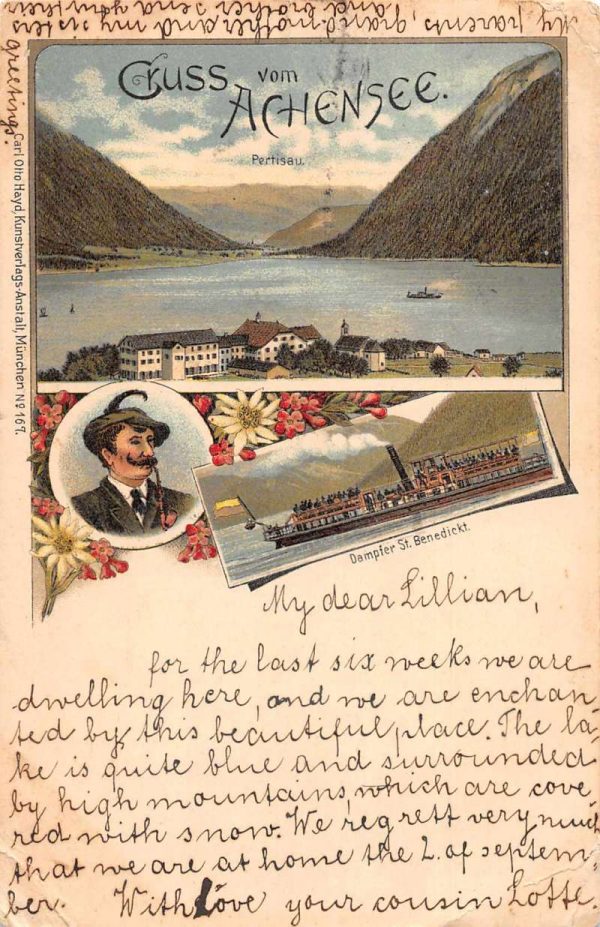 Gruss vom
ACHENSEE.
Pertisau.
Carl Otto Hayd, Kunstverlags-Anstalt, München No 167.
Dampfer St. Benedickt.
My dear Lillian,
for the last six weeks we are
dwelling here, and we are enchan-
ted by this beautiful place. The la-
ke is quite blue and surrounded
by high mountains, which are cove
red with snow. We regrett very much
that we are at home the 2. of septem-
ber. With Love your cousin Lotte.
My parents, grand-mother and my sisters
and brother send you their
greetings.